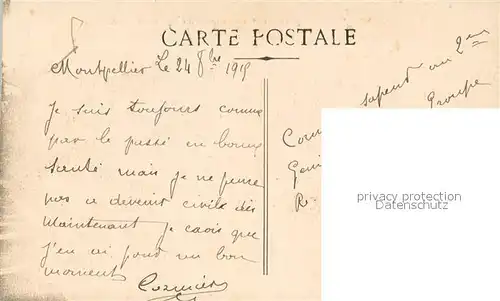 CARTE POSTALE
Montpellier Le 24 8bre 1915
Je suis toujours comme
par le passé en bonne
santé mais je ne pense
pas a devenir civile dès
Maintenant je crois que
j'en ai pour un bon
moment
sapeur au 2em
Groupe
privacy protection
Datenschutz